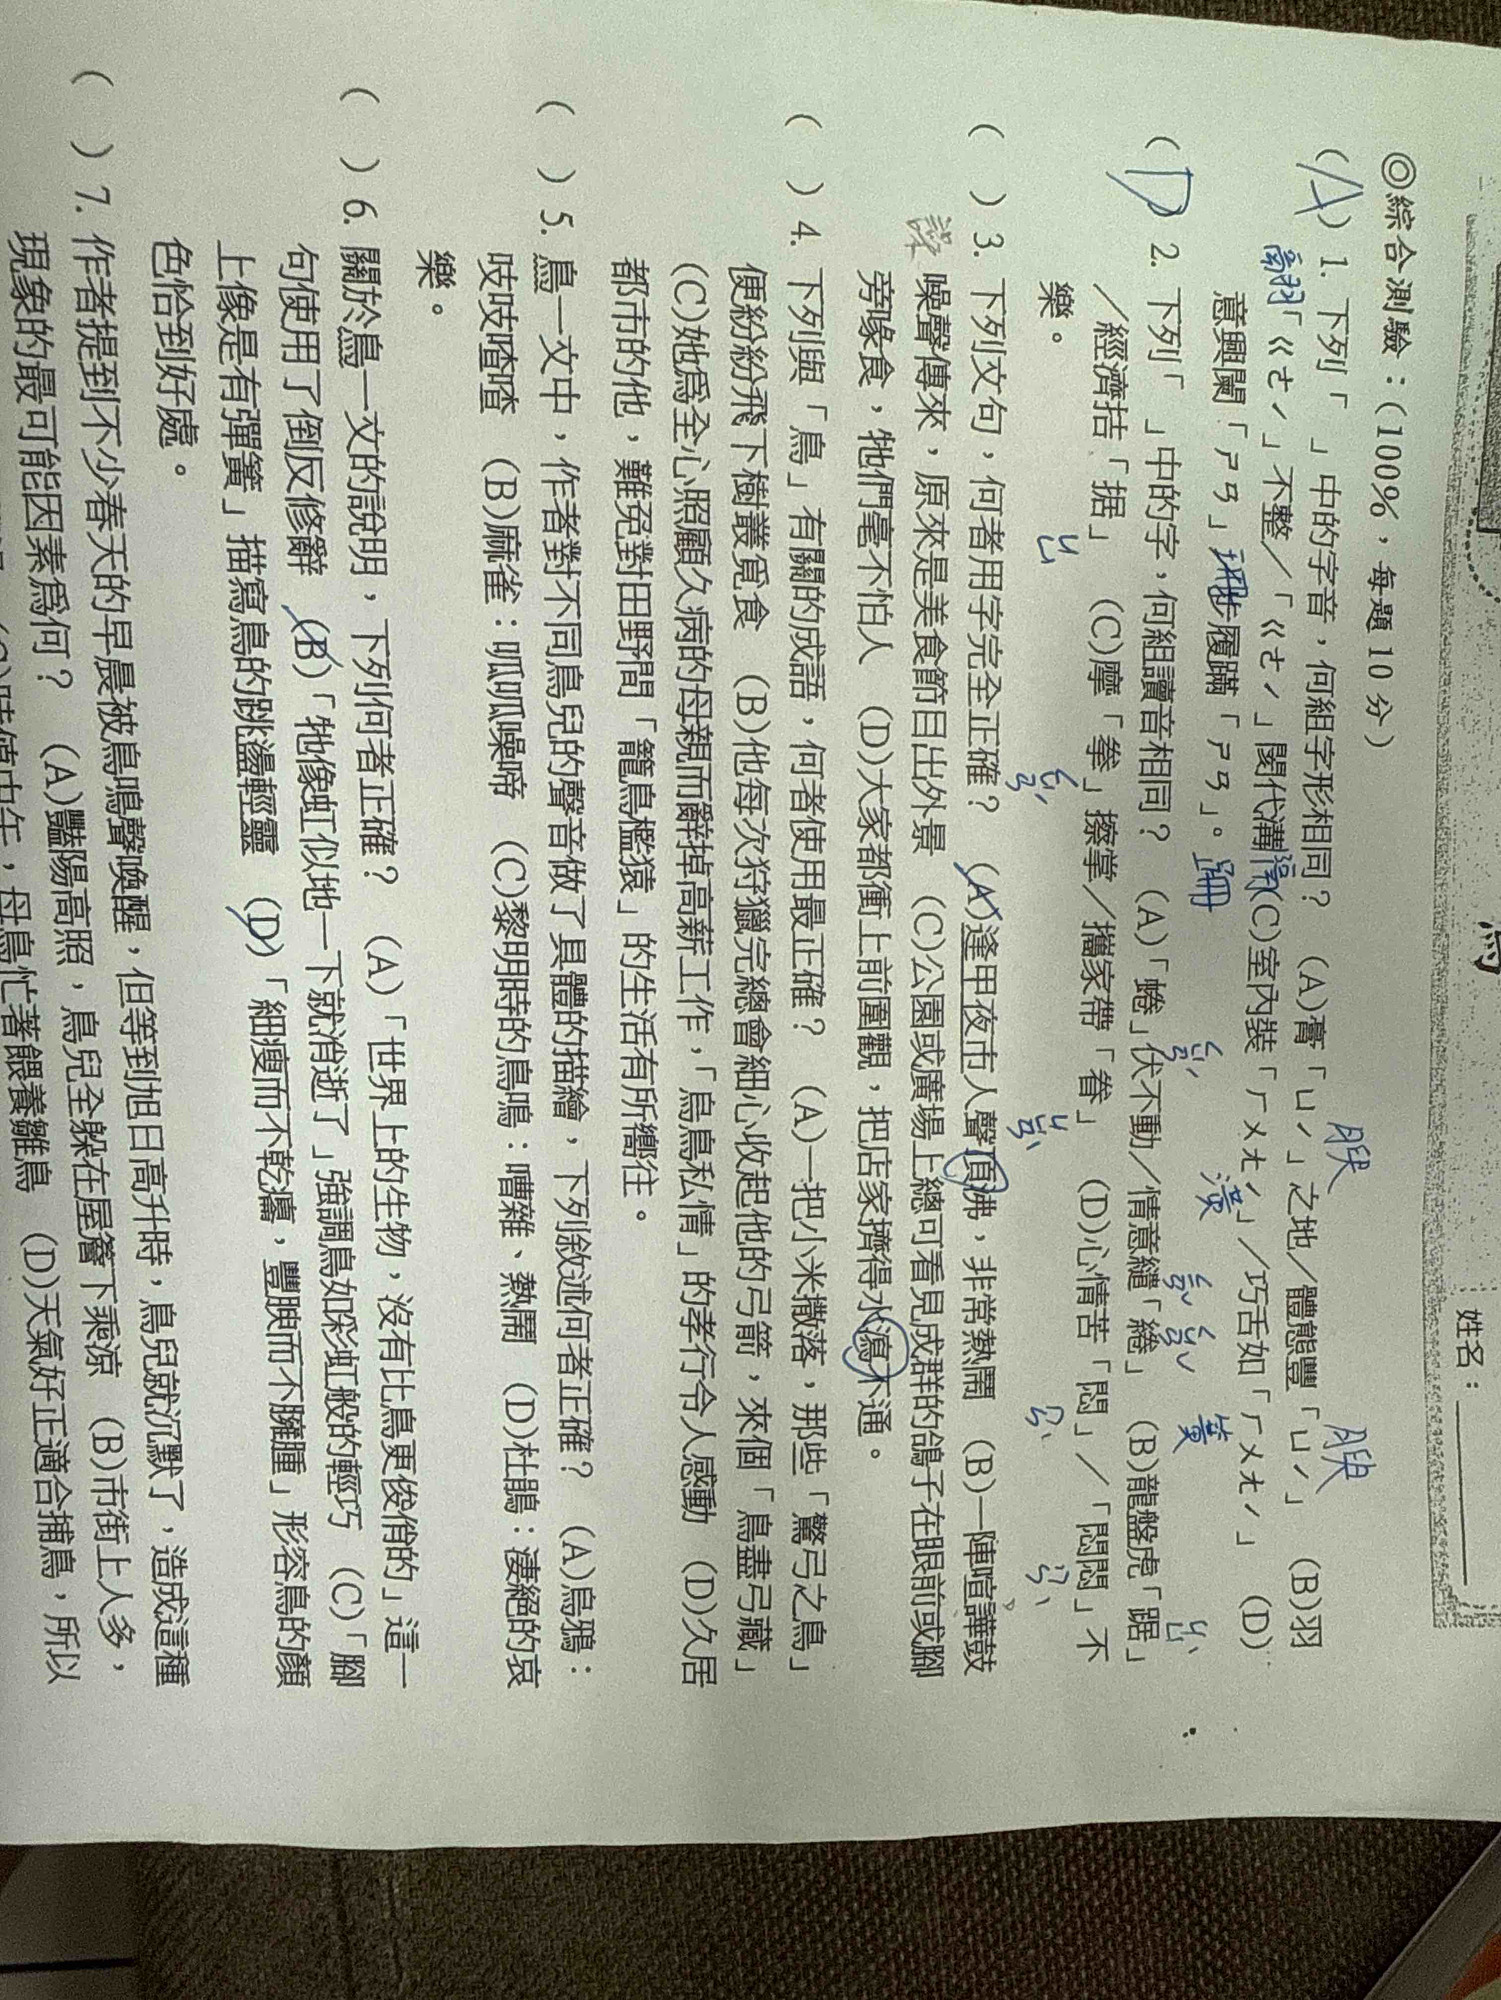 鳥
姓名：
◎綜合測驗：(100%，每題 10 分)
(A) 1. 下列「　」中的字音，何組字形相同？　(A)膏「ㄩˊ」之地／體態豐「ㄩˊ」　(B)羽
腴　腴
「ㄍㄜˊ」不整／「ㄍㄜˊ」閡代溝　(C)室內裝「ㄏㄨㄤˊ」／巧舌如「ㄏㄨㄤˊ」　(D)
翮　隔　潢　簧
意興闌「ㄕㄢ」／步履蹣「ㄕㄢ」。
珊　跚
(D) 2. 下列「　」中的字，何組讀音相同？　(A)「蜷」伏不動／情意繾「綣」　(B)龍盤虎「踞」
／經濟拮「据」　(C)摩「拳」擦掌／攜家帶「眷」　(D)心情苦「悶」／「悶悶」不
樂。
(　) 3. 下列文句，何者用字完全正確？　(A)逢甲夜市人聲頂沸，非常熱鬧　(B)一陣喧譁鼓
譟
噪聲傳來，原來是美食節目出外景　(C)公園或廣場上總可看見成群的鴿子在眼前或腳
旁喙食，牠們毫不怕人　(D)大家都衝上前圍觀，把店家擠得水瀉不通。
(　) 4. 下列與「鳥」有關的成語，何者使用最正確？　(A)一把小米撒落，那些「驚弓之鳥」
便紛紛飛下樹叢覓食　(B)他每次狩獵完總會細心收起他的弓箭，來個「鳥盡弓藏」
(C)她為全心照顧久病的母親而辭掉高薪工作，「烏鳥私情」的孝行令人感動　(D)久居
都市的他，難免對田野間「籠鳥檻猿」的生活有所嚮往。
(　) 5. 鳥一文中，作者對不同鳥兒的聲音做了具體的描繪，下列敘述何者正確？　(A)烏鴉：
吱吱喳喳　(B)麻雀：呱呱噪啼　(C)黎明時的鳥鳴：嘈雜、熱鬧　(D)杜鵑：淒絕的哀
樂。
(　) 6. 關於鳥一文的說明，下列何者正確？　(A)「世界上的生物，沒有比鳥更俊俏的」這一
句使用了倒反修辭　(B)「牠像虹似地一下就消逝了」強調鳥如彩虹般的輕巧　(C)「腳
上像是有彈簧」描寫鳥的跳盪輕靈　(D)「細瘦而不乾癟，豐腴而不臃腫」形容鳥的顏
色恰到好處。
(　) 7. 作者提到不少春天的早晨被鳥鳴聲喚醒，但等到旭日高升時，鳥兒就沉默了，造成這種
現象的最可能因素為何？　(A)豔陽高照，鳥兒全躲在屋簷下乘涼　(B)市街上人多，
母鳥忙著餵養雛鳥　(D)天氣好正適合捕鳥，所以